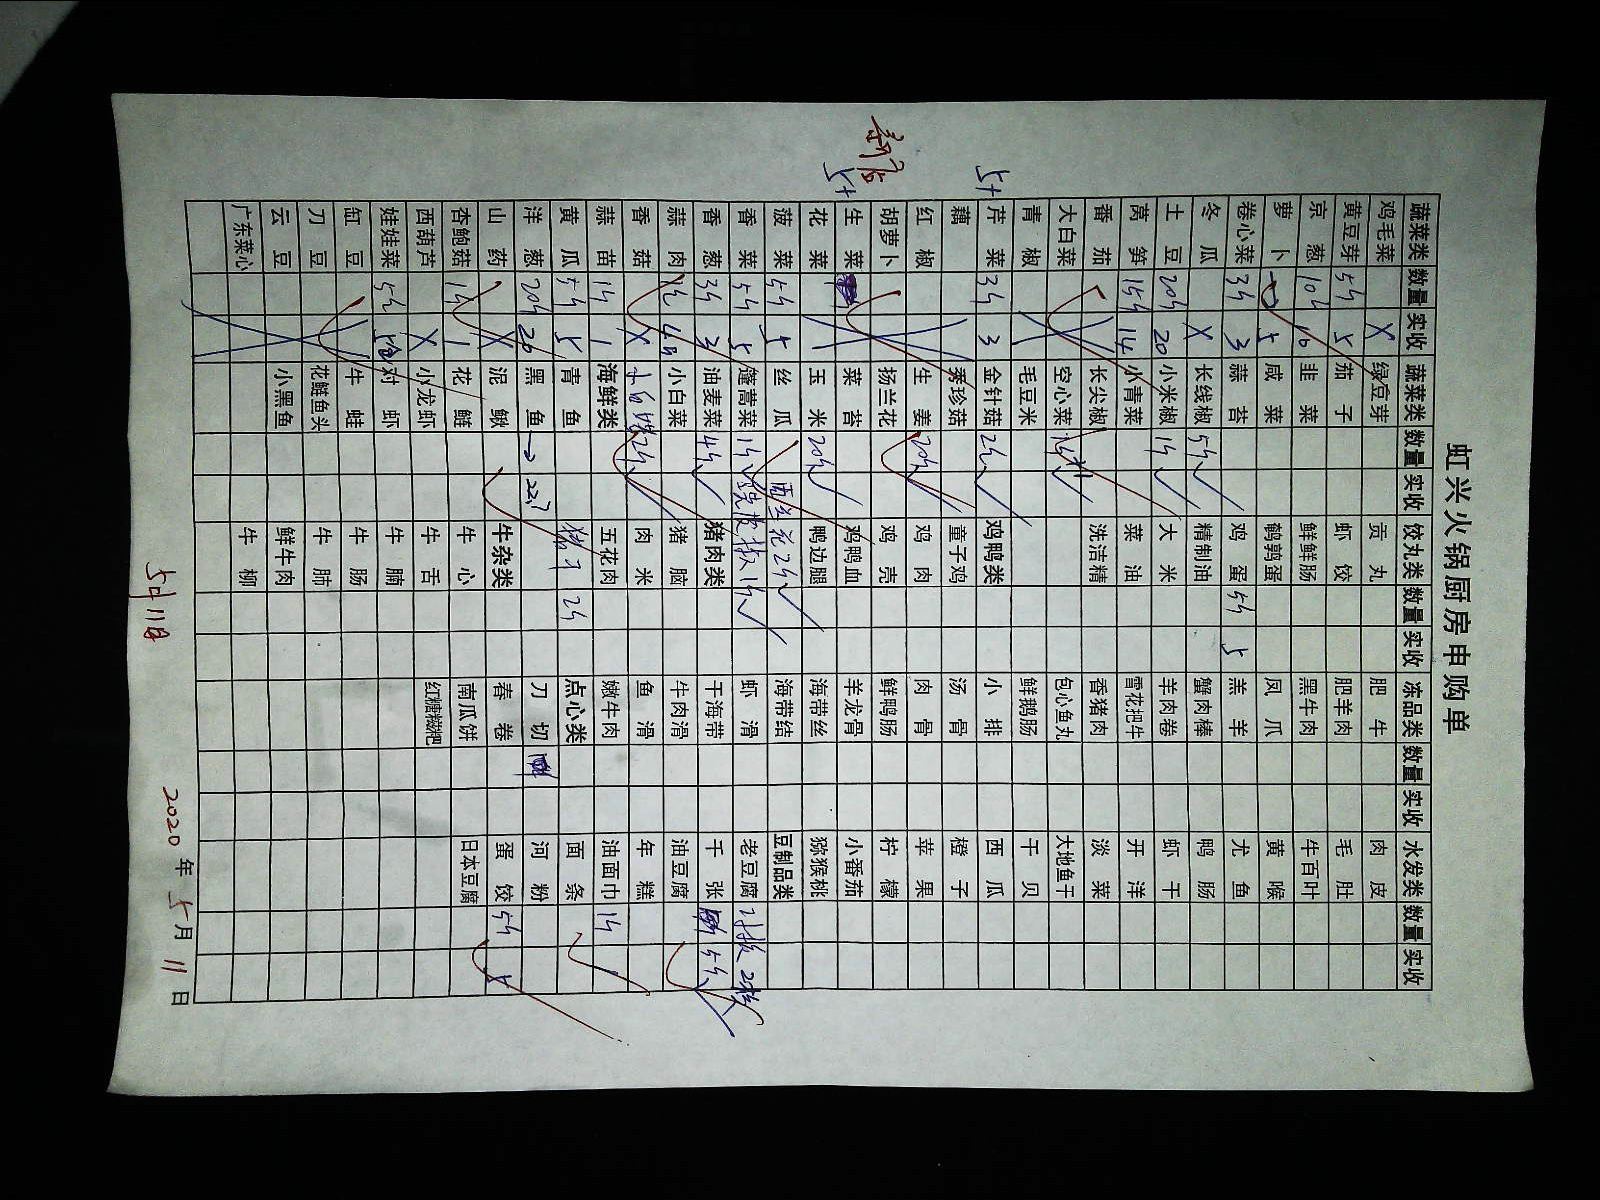 虹兴火锅厨房申购单
蔬菜类 数量 实收 蔬菜类 数量 实收 饺丸类 数量 实收 冻品类 数量 实收 水发类 数量 实收
鸡毛菜 X 绿豆芽 贡丸 肥牛 肉皮
黄豆芽 5斤 5 茄子 虾饺 肥羊肉 毛肚
京葱 10斤 10 韭菜 鲜鲜肠 黑牛肉 牛百叶
萝卜 5 咸菜 鹌鹑蛋 凤爪 黄喉
卷心菜 3斤 3 蒜苔 鸡蛋 5斤 5 羔羊 尤鱼
冬瓜 X 长线椒 5斤 精制油 蟹肉棒 鸭肠
土豆 20斤 20 小米椒 1斤 大米 羊肉卷 虾干
莴笋 15斤 14 小青菜 菜油 雪花把牛 开洋
番茄 长尖椒 洗洁精 香猪肉 淡菜
大白菜 空心菜 包心鱼丸 大地鱼干
青椒 毛豆米 鲜鹅肠 干贝
5+ 芹菜 3斤 3 金针菇 2斤 鸡鸭类 小排 西瓜
藕 秀珍菇 童子鸡 汤骨 橙子
红椒 生姜 20斤 鸡肉 肉骨 苹果
新店
胡萝卜 杨兰花 鸡壳 鲜鸭肠 柠檬
5+ 生菜 菜苔 鸡鸭血 羊龙骨 小番茄
花菜 玉米 20斤 鸭边腿 海带丝 猕猴桃
菠菜 5斤 5 丝瓜 西兰花2斤 海带结 豆制品类
香菜 5斤 5 蓬蒿菜 1斤 虾滑 老豆腐 2板 2板
香葱 3斤 3 油麦菜 4斤 猪肉类 干海带 千张 5斤
蒜肉 4斤 小白菜 猪脑 牛肉滑 油豆腐
香菇 X 2斤 肉米 鱼滑 年糕
蒜苗 1斤 1 海鲜类 五花肉 嫩牛肉 油面巾 1斤
黄瓜 5斤 5 青鱼 猪肝 2斤 点心类 面条
洋葱 20斤 20 黑鱼 刀切 河粉
山药 X 泥鳅 牛杂类 春卷 蛋饺 5斤 5
杏鲍菇 1斤 1 花鲢 牛心 南瓜饼 日本豆腐
西葫芦 X 小龙虾 牛舌 红糖糍粑
娃娃菜 5斤 对虾 牛腩
缸豆 牛蛙 牛肠
刀豆 花鲢鱼头 牛肺
云豆 小黑鱼 鲜牛肉
广东菜心 牛柳
5月11日 2020年5月11日